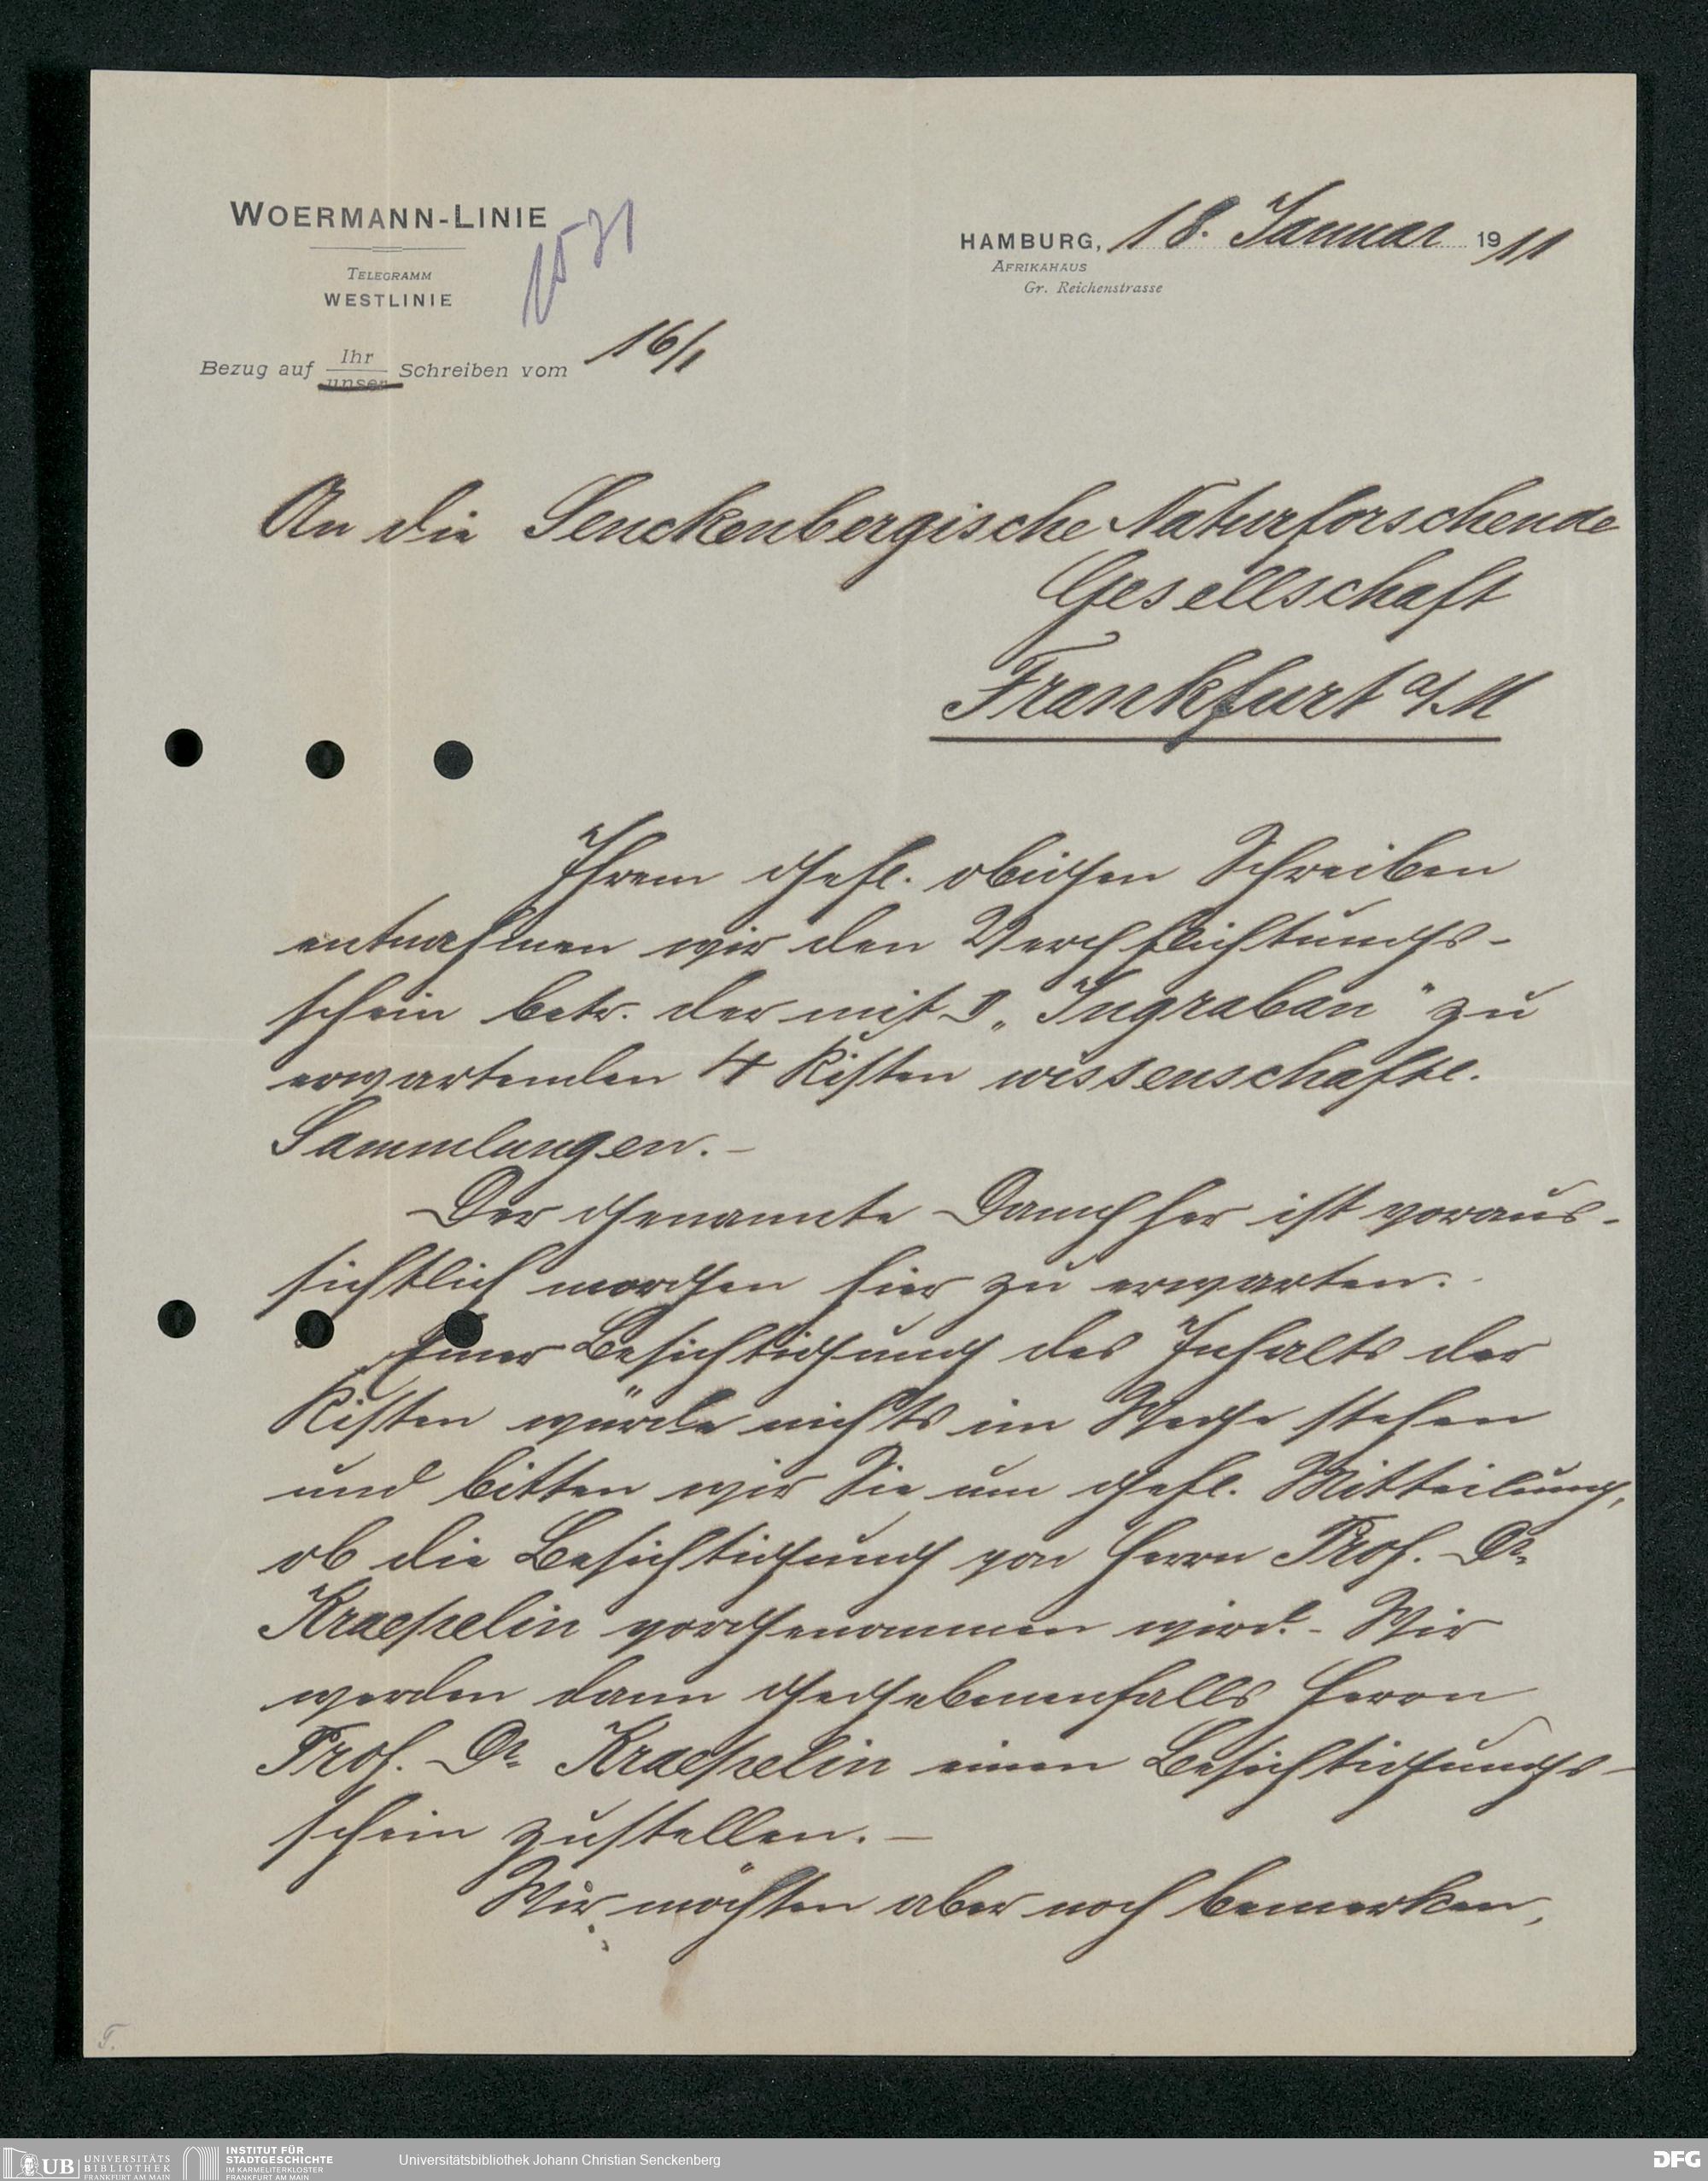 WOERMANN-LINIE
TELEGRAMM
WESTLINIE
1531
HAMBURG, 18. Januar 1911
AFRIKAHAUS
Gr. Reichenstrasse
Bezug auf Ihr unser Schreiben vom 16/1
An die Senckenbergische Naturforschende
Gesellschaft
Frankfurt a/M
Ihrem gefl. obigen Schreiben
entnahmen wir den Verpflichtungs-
schein betr. der mit D „Ingraban" zu
erwartenden 4 Kisten wissenschaftl.
Sammlungen. -
Der genannte Dampfer ist voraus-
sichtlich morgen hier zu erwarten.
Einer Besichtigung des Inhalts der
Kisten würde nichts im Wege stehen
und bitten wir Sie um gefl. Mitteilung,
ob die Besichtigung von Herrn Prof. Dr.
Kraepelin vorgenommen wird. - Wir
werden dann gegebenenfalls Herrn
Prof. Dr. Kraepelin einen Besichtigungs-
schein zustellen. -
Wir möchten aber noch bemerken,
T.
UB UNIVERSITÄTS
BIBLIOTHEK
FRANKFURT AM MAIN
INSTITUT FÜR
STADTGESCHICHTE
IM KARMELITERKLOSTER
FRANKFURT AM MAIN
Universitätsbibliothek Johann Christian Senckenberg
DFG